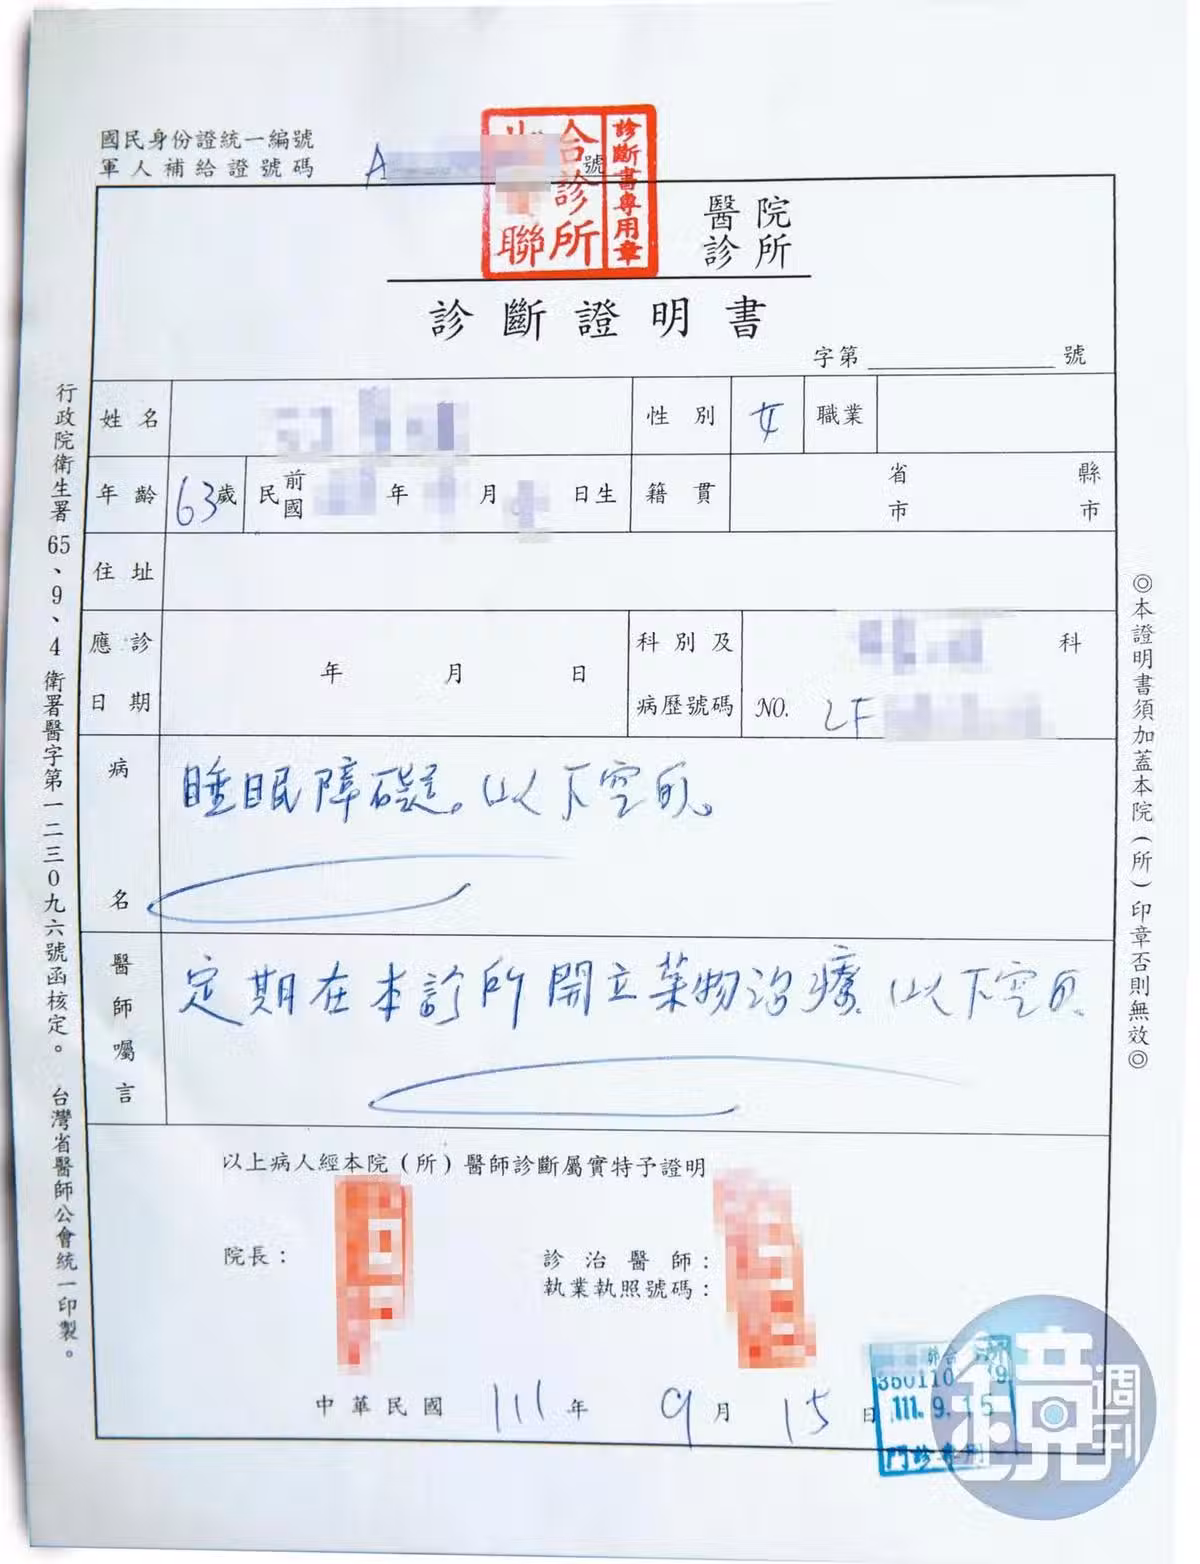 國民身份證統一編號
軍人補給證號碼
A
號
合診所
聯
診斷書專用章
醫院
診所
診斷證明書
字第 號
姓名
性別 女 職業
年齡 63歲 民前國 年 月 日生 籍貫 省市 縣市
住址
應診日期 年 月 日
科別及病歷號碼 科
NO. LF
病名
睡眠障礙。以下空白。
醫師囑言
定期在本診所開立藥物治療。以下空白。
以上病人經本院(所)醫師診斷屬實特予證明
院長:
診治醫師:
執業執照號碼:
中華民國 111 年 9 月 15 日
聯合 所
111. 9. 15
行政院衛生署65、9、4衛署醫字第一二三0九六號函核定。 台灣省醫師公會統一印製。
◎本證明書須加蓋本院(所)印章否則無效◎
鏡週刊